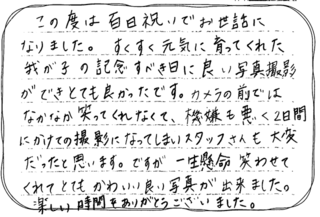 この度は百日祝いでお世話に
なりました。すくすく元気に育ってくれた
我が子の記念すべき日に良い写真撮影
ができとても良かったです。カメラの前では
なかなか笑ってくれなくて、機嫌も悪く2日間
にかけての撮影になってしまいスタッフさんも大変
だったと思います。ですが一生懸命笑わせて
くれてとてもかわいい良い写真が出来ました。
楽しい時間をありがとうございました。